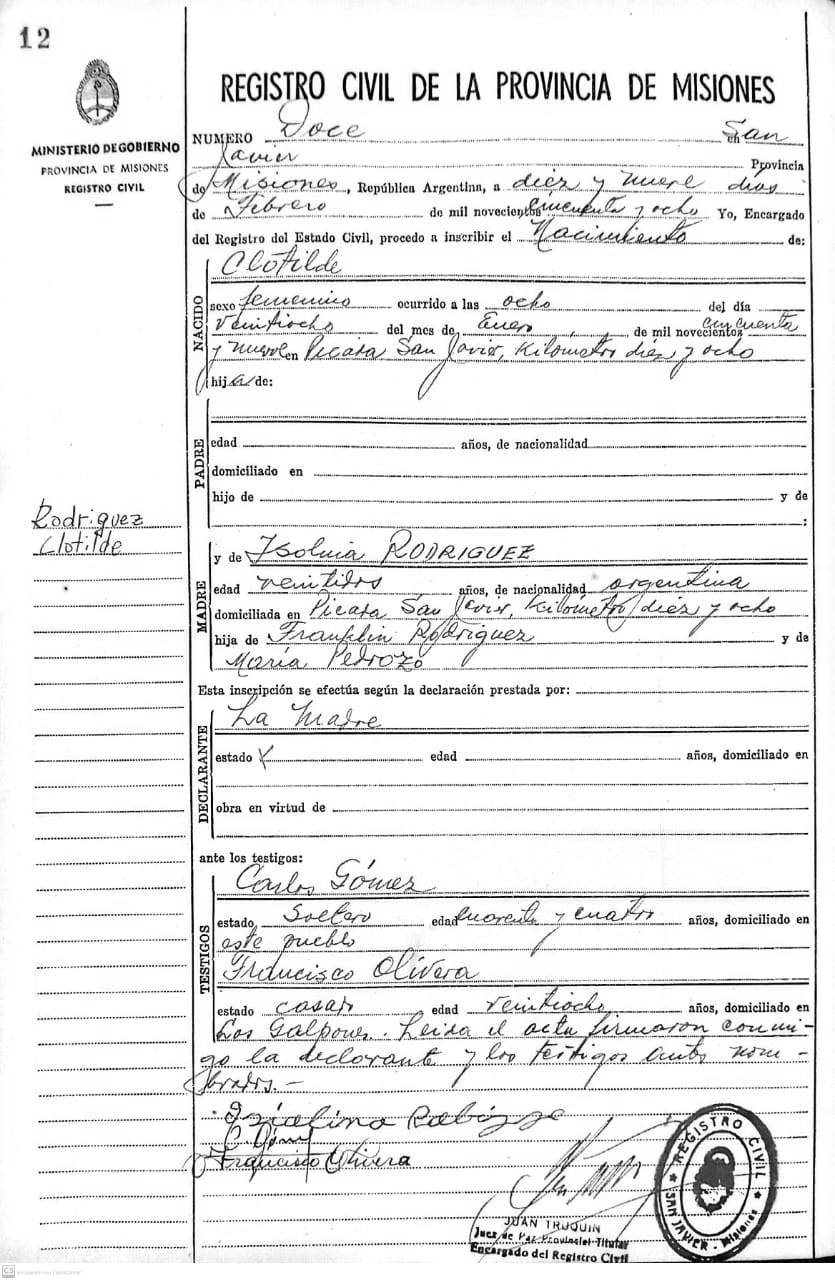 12
MINISTERIO DE GOBIERNO
PROVINCIA DE MISIONES
REGISTRO CIVIL
REGISTRO CIVIL DE LA PROVINCIA DE MISIONES
NUMERO Doce en San
Javier Provincia
de Misiones, República Argentina, a diez y nueve días
de Febrero de mil novecientos cincuenta y ocho Yo, Encargado
del Registro del Estado Civil, procedo a inscribir el Nacimiento de:
NACIDO
Clotilde
sexo femenino ocurrido a las ocho del día
veintiocho del mes de Enero, de mil novecientos cincuenta
y nueve en Picada San Javier, Kilómetro diez y ocho
hija de:
PADRE
edad años, de nacionalidad
domiciliado en
hijo de y de
:
Rodriguez
Clotilde
MADRE
y de Isolina RODRIGUEZ
edad veintidos años, de nacionalidad argentina
domiciliada en Picada San Javier, Kilómetro diez y ocho
hija de Franklin Rodriguez y de
María Pedrozo
Esta inscripción se efectúa según la declaración prestada por:
DECLARANTE
La Madre
estado X edad años, domiciliado en
obra en virtud de
ante los testigos:
TESTIGOS
Carlos Gómez
estado Soltero edad cuarenta y cuatro años, domiciliado en
este pueblo
Francisco Olivera
estado casado edad veintiocho años, domiciliado en
Los Galpones. Leida el acta firmaron conmi-
go la declarante y los testigos antes nom-
brados.-
C. Gómez
Francisco Olivera
REGISTRO CIVIL
SAN JAVIER - Misiones
JUAN TRUQUIN
Juez de Paz Provincial Titular
Encargado del Registro Civil
CS